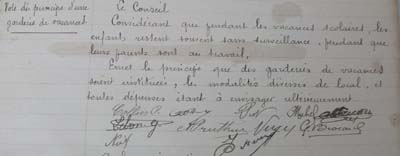 Vote du principe d'une
garderie de vacances
Le Conseil
Considérant que pendant les vacances scolaires, les
enfants restent souvent sans surveillance, pendant que
leurs parents sont au travail,
Emet le principe que des garderies de vacances
soient instituées, les modalités diverses de local, et
toutes dépenses étant à envisager ultérieurement